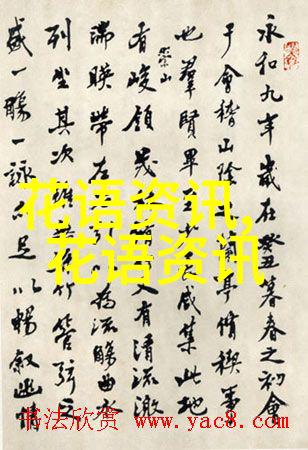 永和九年歲在癸丑暮春之初會
于會稽山陰蘭亭脩禊事
也羣賢畢咸集此地
有崇山峻領茂又有清流激
湍暎帶左為流觴曲水
列坐其次管弦之
盛一觴一詠亦足以暢叙幽情
花语资讯,
花语资讯
书法欣赏 www.yac8.com